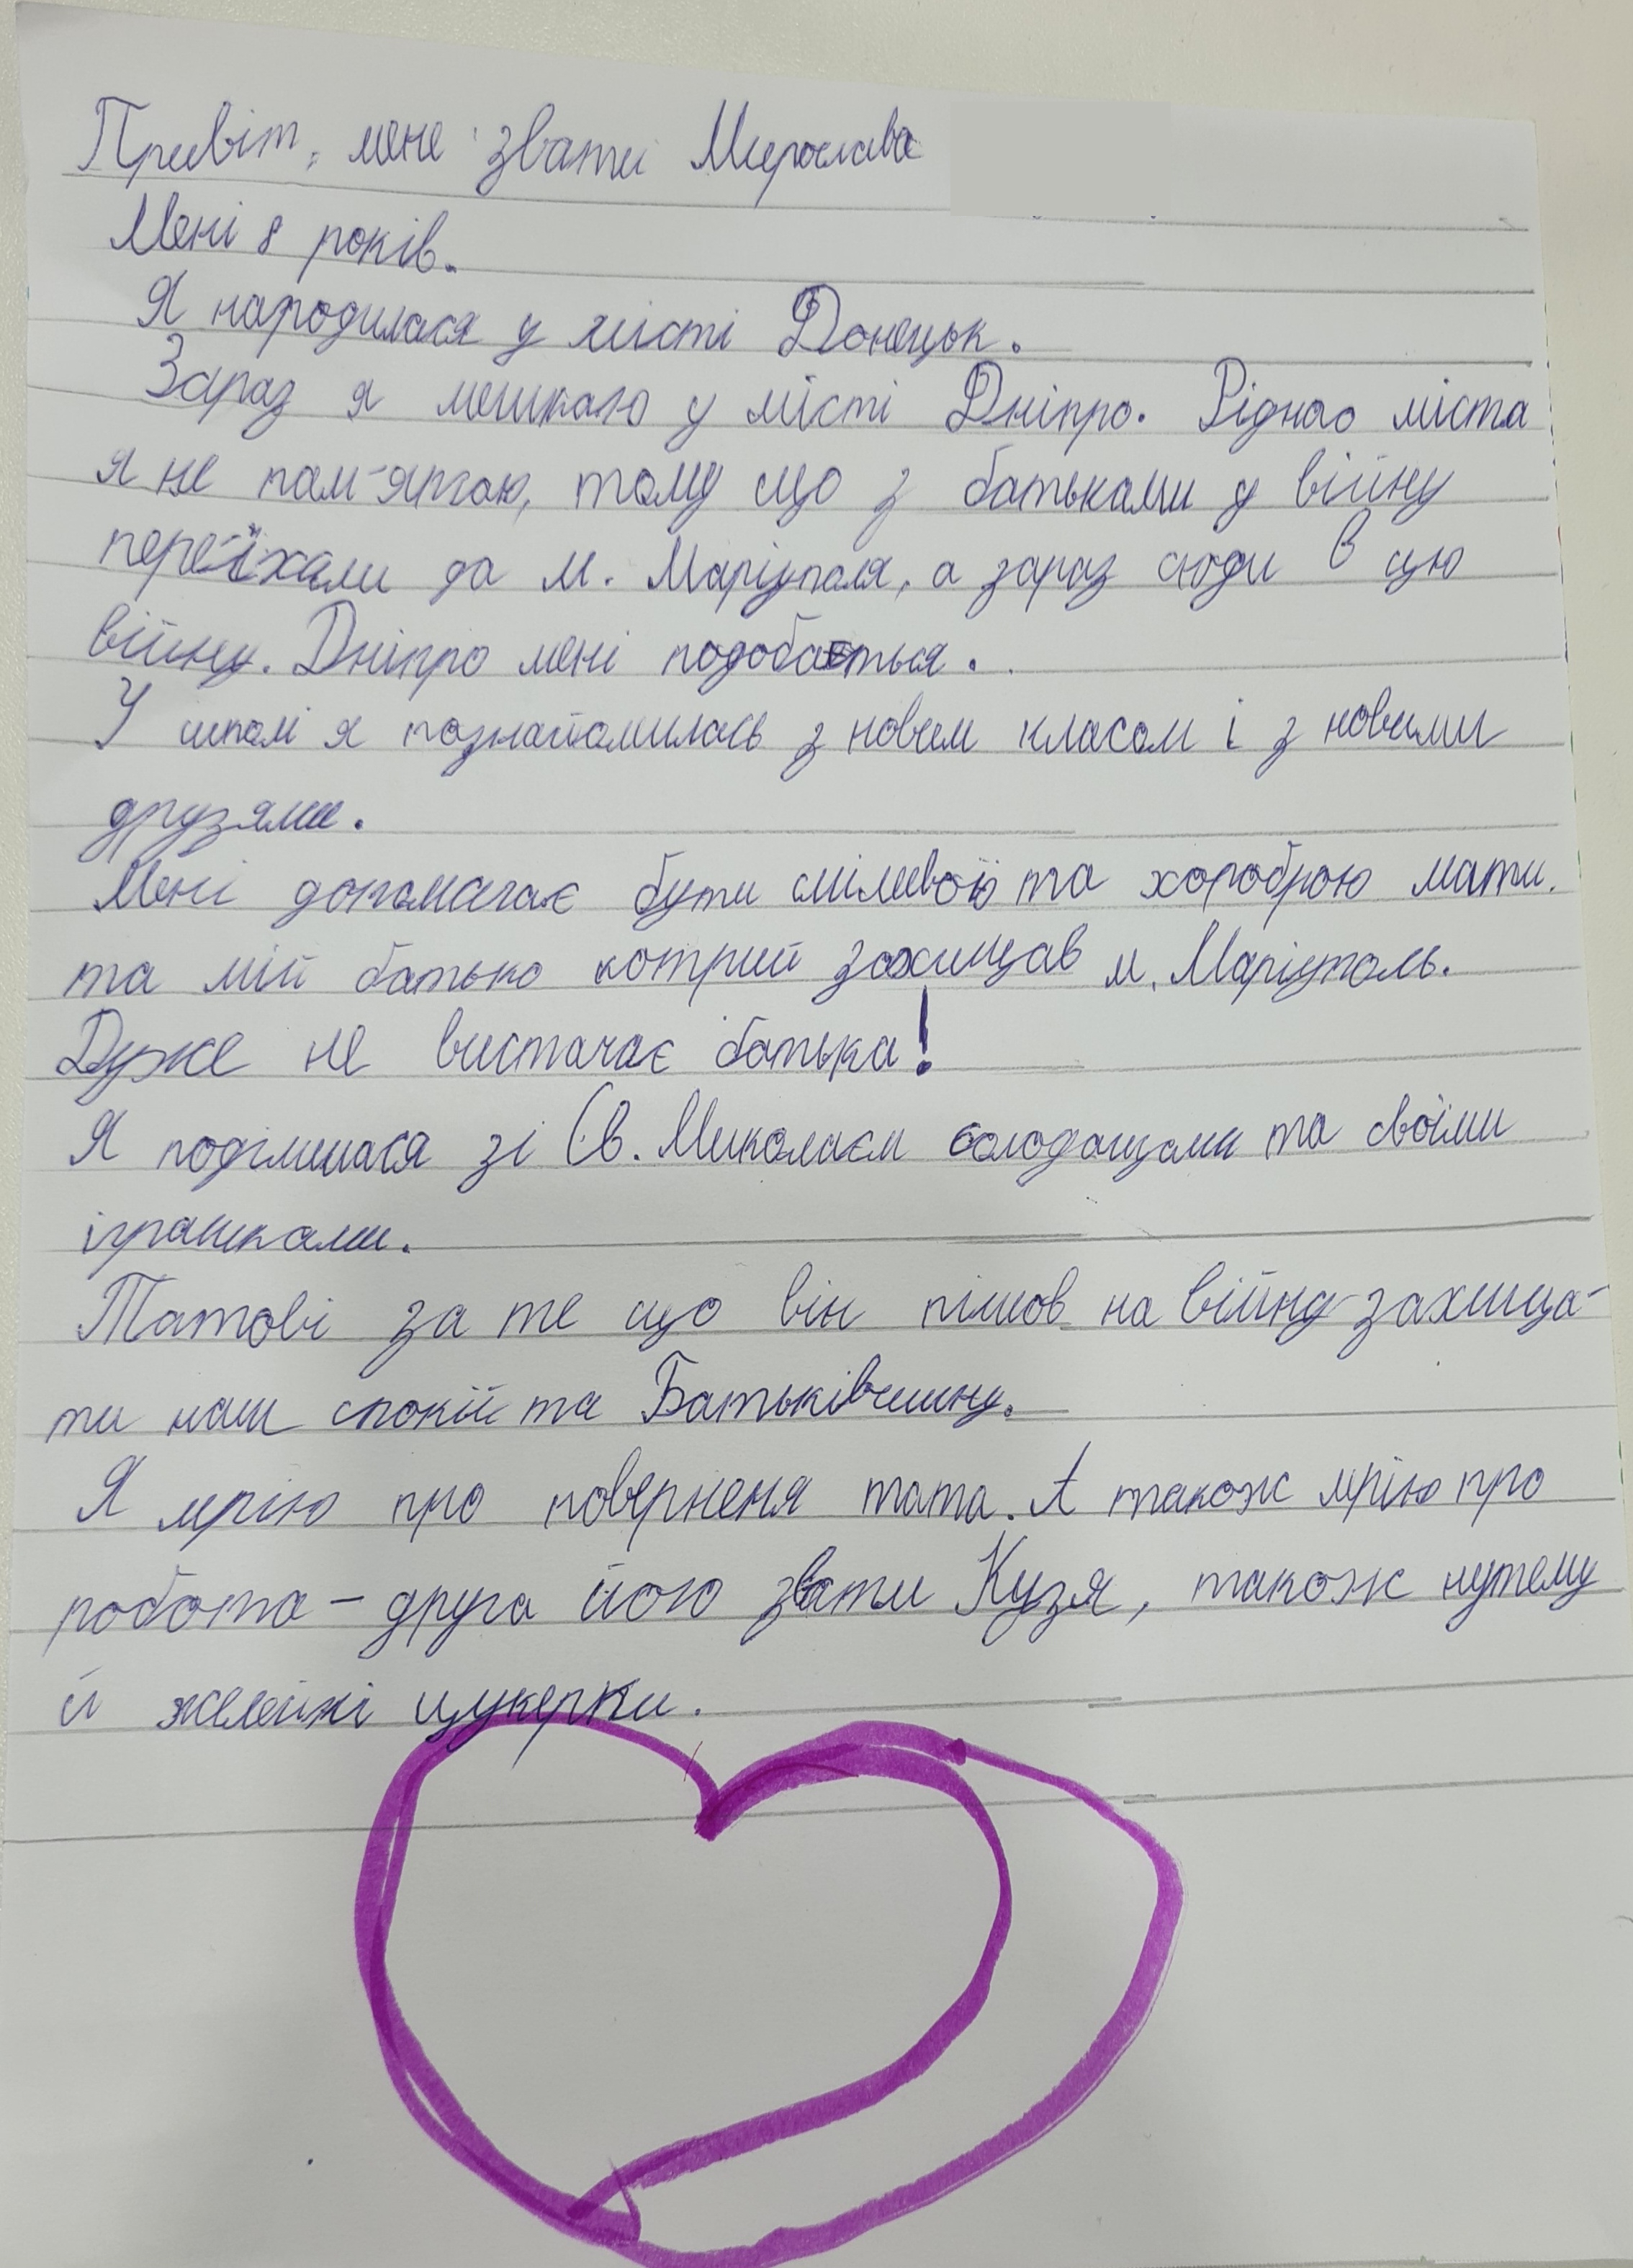 Привіт, мене звати Мирослава
Мені 8 років.
Я народилася у місті Донецьк.
Зараз я мешкаю у місті Дніпро. Рідного міста
я не пам'ятаю, тому що з батьками у війну
переїхали до м. Маріуполя, а зараз сюди в цю
війну. Дніпро мені подобається.
У школі я познайомилась з новим класом і з новими
друзями.
Мені допомагає бути сміливою та хороброю мати.
та мій батько котрий захищав м. Маріуполь.
Дуже не вистачає батька!
Я поділилася зі Св. Миколаєм солодощами та своїми
іграшками.
Татові за те що він пішов на війну захища-
ти наш спокій та Батьківщину.
Я мрію про поверненя тата. А також мрію про
робота - друга його звати Кузя, також нутелу
й желейні цукерки.